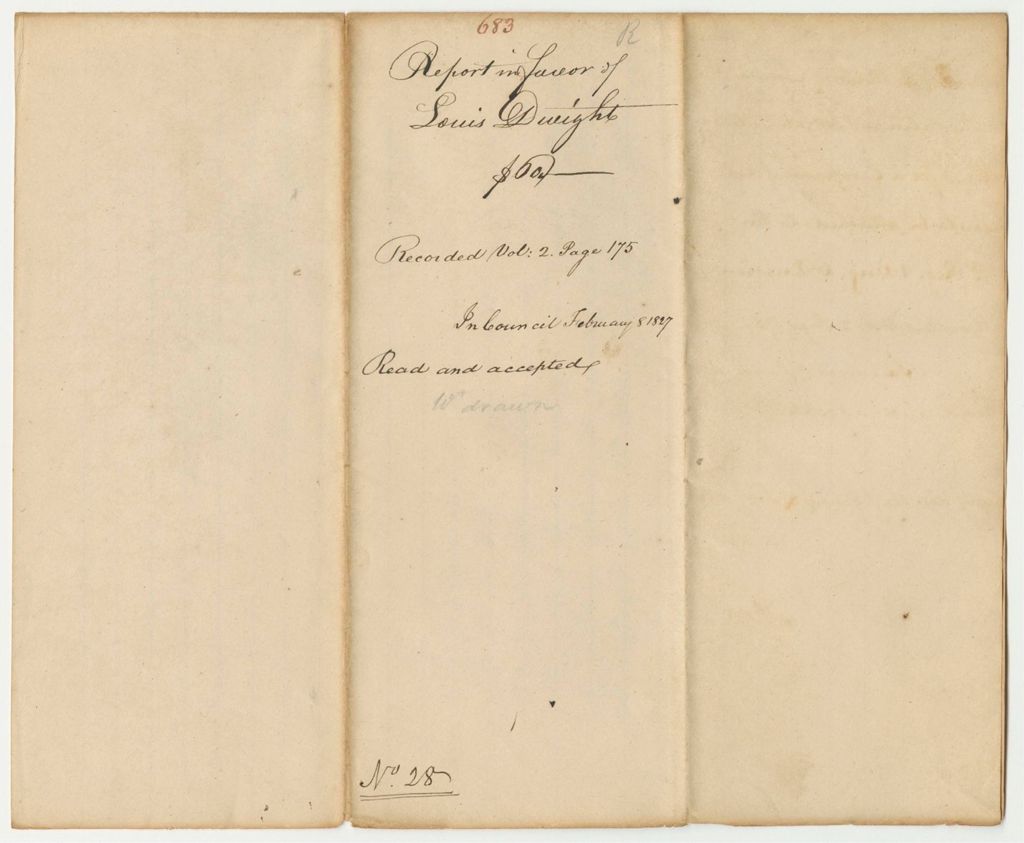 683
R
Report in favor of
Louis Dwight
$60
Recorded Vol: 2. Page 175
In Council February 8 1827
Read and accepted
Wdrawn
No. 28